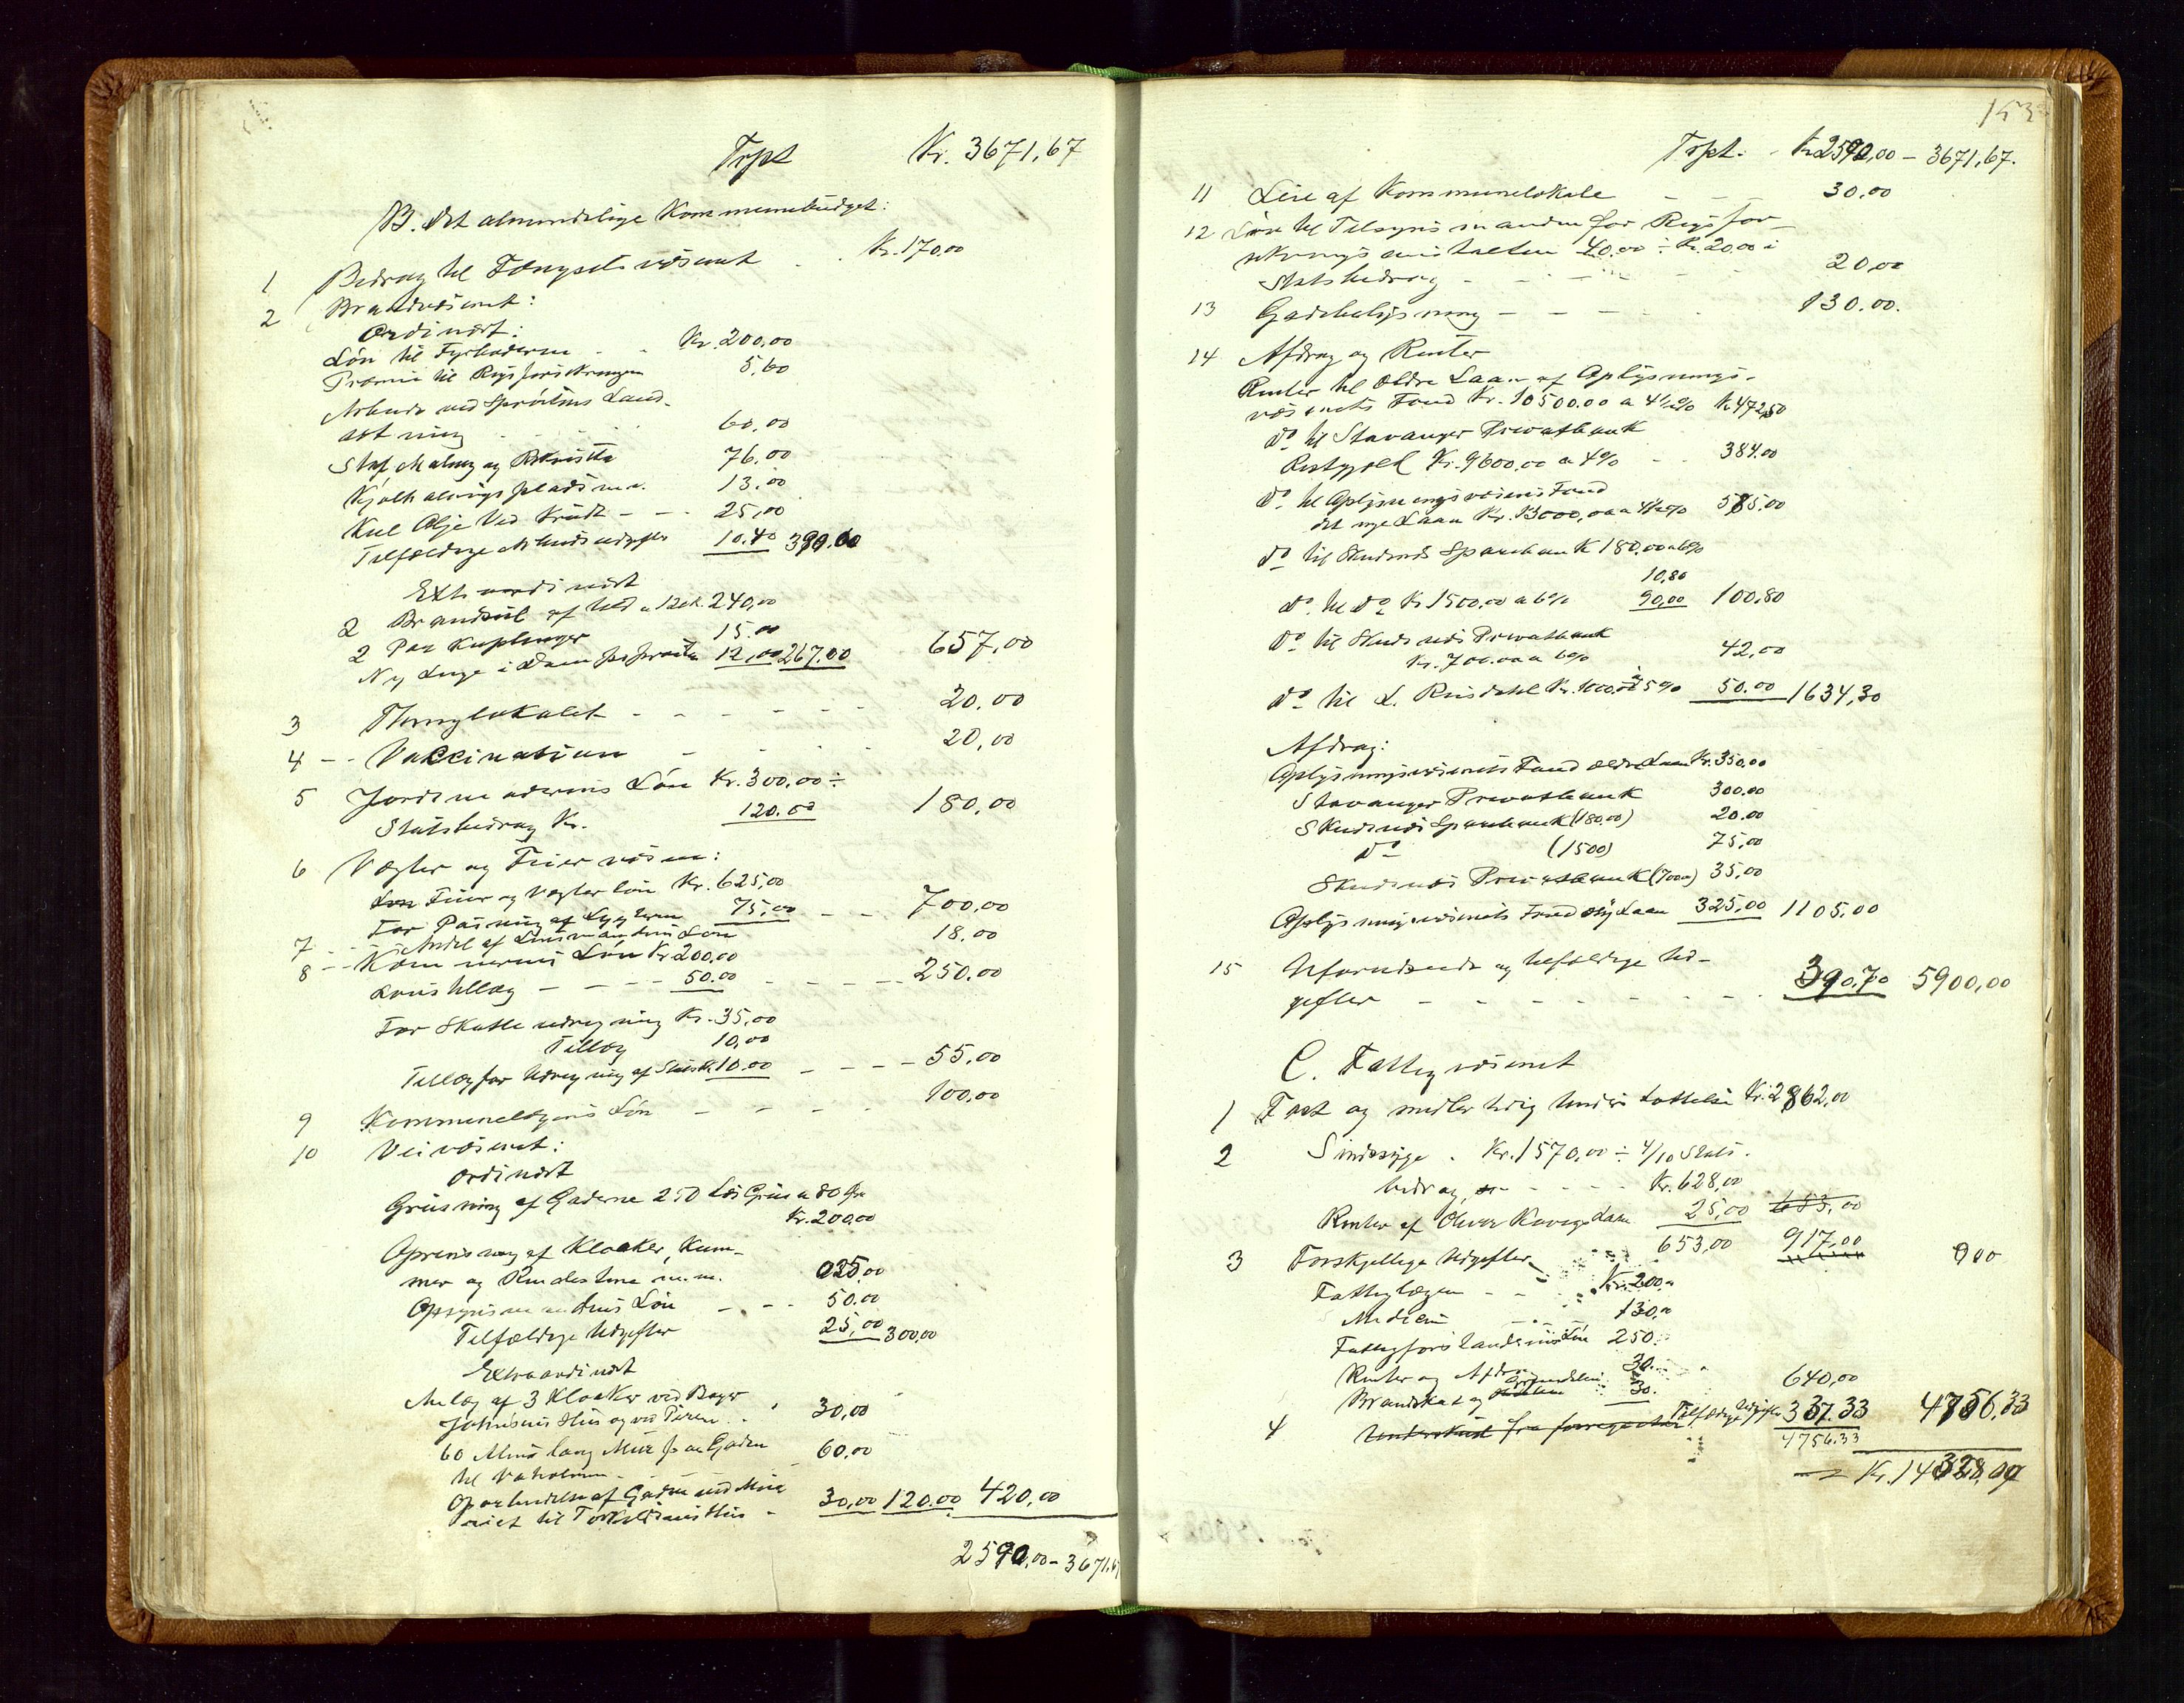 Trpt Kr. 3671,67
B. Det almindelige Kommunebudget:
1 Bidrag til Fængselsvæsenet Kr. 170,00
2 Brandvæsenet:
Ordinært:
Løn til Fyrbøderne Kr. 200,00
Præmie til Rigsforsikringen 5,60
Arbeide ved Sprøitens Land-
sætning 60,00
76,00
Kjølhalingspladsen 13,00
Kul Olje Ved Krudt - - 25,00
Tilfældige Arbeidsudgifter 10.40 390.00
Extraordinært
2 Brandseil af Uld a 12ek. 240,00
2 Par Kuplinger 15.00
Ny Luge i Dampsprøiten 12,00 267.00 657,00
3 Thinglokalet - - - - - 20,00
4 - - Vaccination - - - - 20,00
5 Jordemoderens Løn Kr. 300,00 ÷
Statsbidrag Kr. 120.00 180,00
6 Vægter og Feiervæsen:
Feier og Vægterløn Kr. 625,00
For Pasning af Lygterne 75,00 - - 700,00
7 - - Andel af Lensmandens Løn 18.00
8 - - Kæmnerens Løn Kr 200.00
Lønstillæg - - - - 50.00 - - - - - 250.00
For Skatteudregning Kr. 35,00
Tillæg 10,00
Tillæg for Udregning af 10.00 - - - - 55.00
9 Kommunelægens Løn - - - - 100,00
10 Veivæsenet:
Ordinært
Grusning af Gaderne 250 Læs Grus a 80 Øre
Kr. 200,00
Oprensning af Kloaker, Kum-
mer og Rendestene m.m. 025,00
Opsynsmandens Løn - - - 50.00
Tilfældige Udgifter 25,00 300,00
Extraordinært
Anlæg af 3 Kloaker ved
Johnsens Hus og ved 30,00
60 Alens lang Mur paa Gaden
til Vaholmen - 60.00
Oparbeidelse af Gaden ved Mur
til Torkildsens Hus - 30,00 120.00 420,00
2590,00 - 3671,67
153
Trpt. Kr 2590,00 - 3671,67.
11 Leie af Kommunelokale - - - 30.00
12 Løn til Tilsynsmanden for Rigsfor-
sikringsanstalten 40.00 ÷ Kr. 20.00 i
Statsbidrag - - - - 20,00
13 Gadebelysning - - - - 130.00.
14 Afdrag og Renter
Renter til ældre Laan af Oplysnings-
væsenets Fond Kr. 10500.00 a 4½% Kr 472,50
Do til Stavanger Privatbank
Restgjæld Kr. 9600.00 a 4% - 384.00
Do til Oplysningsvæsenets Fond
det nye Laan Kr. 13000,00 a 4½% 585,00
Do til Skudenæs Sparebank 180,00 a 6%
10,80
Do til Do Kr 1500.00 a 6% 90,00 100,80
Do til Skudenæs Privatbank
Kr. 700.00 a 6% 42,00
Do til L. Risdahl Kr. 1000,00 a 5% 50.00 1634,30
Afdrag:
Oplysningsvæsenets Fond ældre Laan Kr. 350,00
Stavanger Privatbank 300.00
Skudenæs Sparebank (180.00) 20.00
Do (1500) 75,00
Skudenæs Privatbank (700,00) 35,00
Oplysningsvæsenets Fond ny Laan 325,00 1105,00
15 Uforudseede og tilfældige Ud-
gifter - - - - - - 390,70 5900,00
C. Fattigvæsenet
1 Fast og midlertidig Understøttelse Kr. 2862,00
2 Sindssyge. Kr. 1570,00 ÷ 4/10 Stats-
bidrag, - - - - Kr. 628,00
Renter af Laan 25,00 653,00
653,00 917,00
3 Forskjellige Udgifter 900
Fattiglægen - - Kr. 200,00
Medicin 130,00
Fattigforstanderens Løn 250
Renter og Afdrag 30
Brandskat og 30. 640,00
4 Underskud fra forrige Tilfældige Udgifter 337.33 4756,33
4756.33
Kr. 14328,00